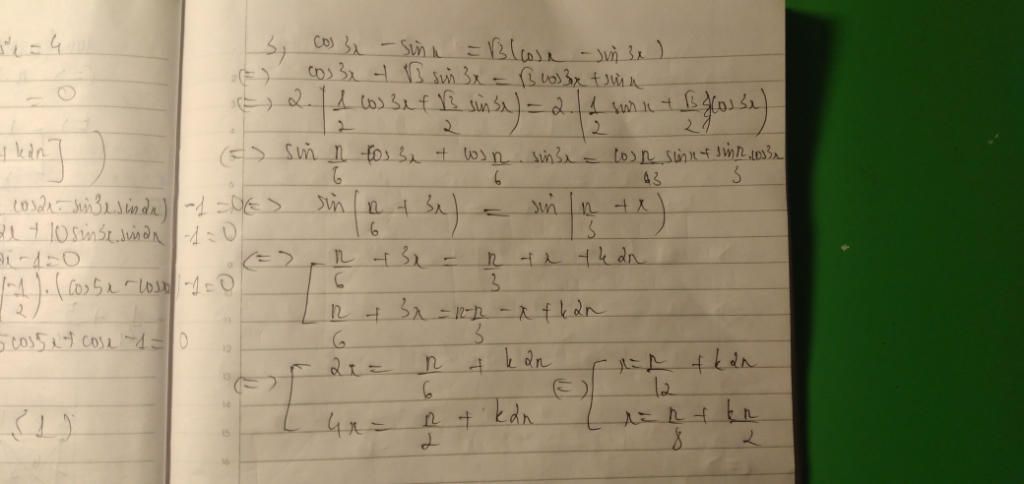 s²x = 4
= 0
+ k2π] )
cos2x - sin3x.sin2x) -1 = 0
2x + 10sin3x.sin2x -1 = 0
2x -1 = 0
(-1/2).(cos5x - cosx) -1 = 0
5cos5x + cosx -1 = 0
{1}
3, cos3x - sinx = √3(cosx - sin3x)
(=) cos3x + √3 sin3x = √3 cos3x + sinx
(=) 2.(1/2 cos3x + √3/2 sin3x) = 2.(1/2 sinx + √3/2 cos3x)
(=) sin π/6 cos3x + cos π/6 . sin3x = cos π/3 sinx + sin π/3 .cos3x
(=) sin(π/6 + 3x) = sin(π/3 + x)
(=) [ π/6 + 3x = π/3 + x + k2π
π/6 + 3x = π - π/3 - x + k2π
(=) [ 2x = π/6 + k2π (=) [ x = π/12 + k2π
4x = π/2 + k2π x = π/8 + kπ/2